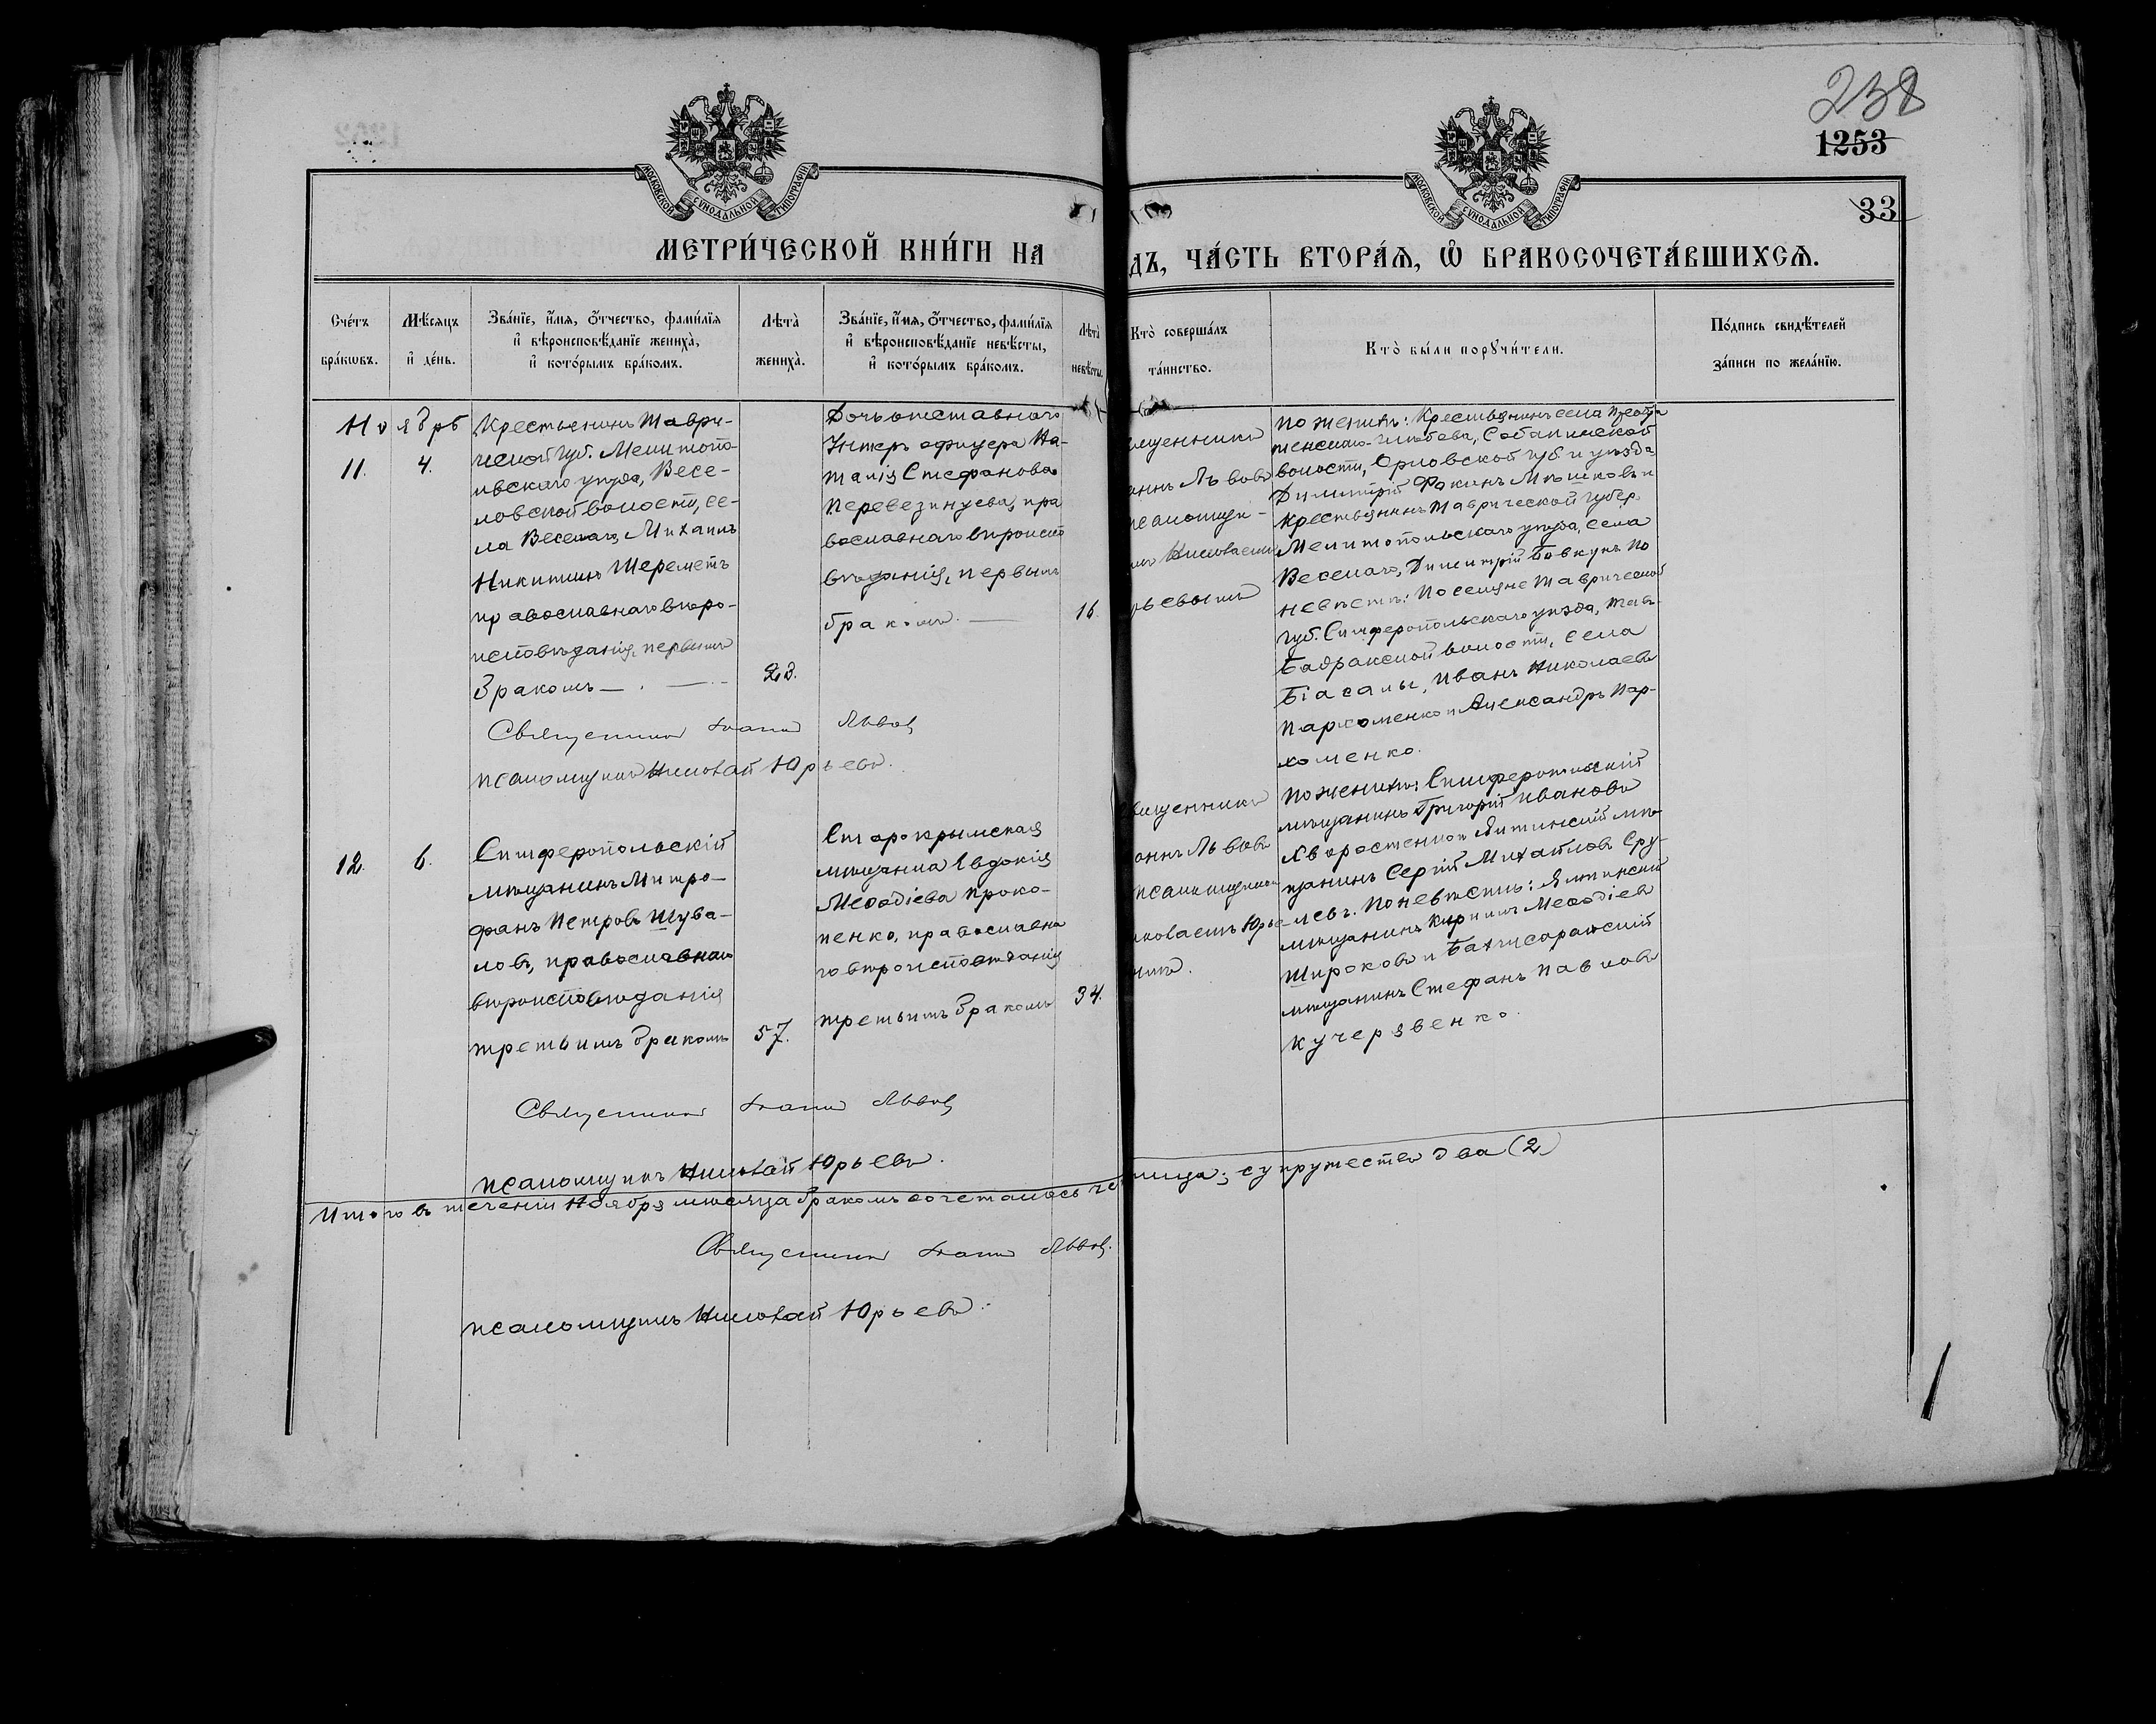 238
1253
33
МОСКОВСКОЙ СѴНОДАЛЬНОЙ ТИПОГРАФІИ
МОСКОВСКОЙ СѴНОДАЛЬНОЙ ТИПОГРАФІИ
МЕТРИ́ЧЕСКОЙ КНИ́ГИ НА
ДЪ, ЧА́СТЬ ВТОРА́Ѧ, Ѽ БРАКОСОЧЕТА́ВШИХСѦ.
Сче́тъ бра́кѡвъ.
Мѣ́сяцъ и҆ де́нь.
Зва́нїе, и҆́мя, ѻ҆́тчество, фами́лїя и҆ вѣроисповѣ́данїе жениха̀, и҆ кото́рымъ бра́комъ.
Лѣта̀ жениха̀.
Зва́нїе, и҆́мя, ѻ҆́тчество, фами́лїя и҆ вѣроисповѣ́данїе невѣ́сты, и҆ кото́рымъ бра́комъ.
Лѣта̀ невѣ́сты.
Кто̀ соверша́лъ та́инство.
Кто̀ бы́ли порꙋчи́тели.
По́дпись свидѣ́телей за́писи по жела́нїю.
Ноябрь
11.
4.
Крестьянинъ Таври-
ческой губ. Мелитопо-
льскаго уѣзда, Весе-
ловской волости, се-
ла Веселаго, Михаилъ
Никитинъ Шереметъ
православнаго вѣро-
исповѣданія, первымъ
бракомъ
23.
Дочь отставнаго
Унтеръ офицера На-
талія Стефанова
Перевезинцева, пра
вославнаго вѣроиспо
вѣданія, первымъ
бракомъ.
16.
ященникъ
аннъ Львовъ
псаломщи-
мъ Николаемъ
рьевымъ
По женихѣ: Крестьянинъ села
волости, Орловской губ. и уѣзда
Димитрій Фокинъ Мѣшковъ и
крестьянинъ Таврической губер.
Мелитопольскаго уѣзда, села
Веселаго, Димитрій Бовкунъ По
невѣстѣ: Поселяне Таврической
губ. Симферопольскаго уѣзда, Тав-
Бадракской волости, села
Біасалы, Иванъ Николаевъ
Пархоменко и Александръ Пар-
хоменко.
Священникъ Іоаннъ Львовъ
псаломщикъ Николай Юрьевъ.
12.
6.
Симферопольскій
мѣщанинъ Митро-
фанъ Петровъ Шува-
ловъ, православнаго
вѣроисповѣданія
третьимъ бракомъ
57.
Старокрымская
мѣщанка Евдокія
Меѳодіева Проко-
пенко, православна
го вѣроисповѣданія
третьимъ бракомъ
34.
вященникъ
оаннъ Львовъ
псаломщикомъ
иколаемъ Юрье-
По женихѣ: Симферопольскій
мѣщанинъ Григорій Ивановъ
Хворостенко и Ялтинскій мѣ-
щанинъ Сергій Михайловъ Сру-
левъ. По невѣстѣ: Ялтинскій
мѣщанинъ Кириллъ Меѳодіевъ
Широковъ и Бахчисарайскій
мѣщанинъ Стефанъ Павловъ
Кучерявенко.
Священникъ Іоаннъ Львовъ
псаломщикъ Николай Юрьевъ.
Итого въ теченіи Ноября мѣсяца бракомъ сочеталось че лица; супружества два (2)
Священникъ Іоаннъ Львовъ.
псаломщикъ Николай Юрьевъ.